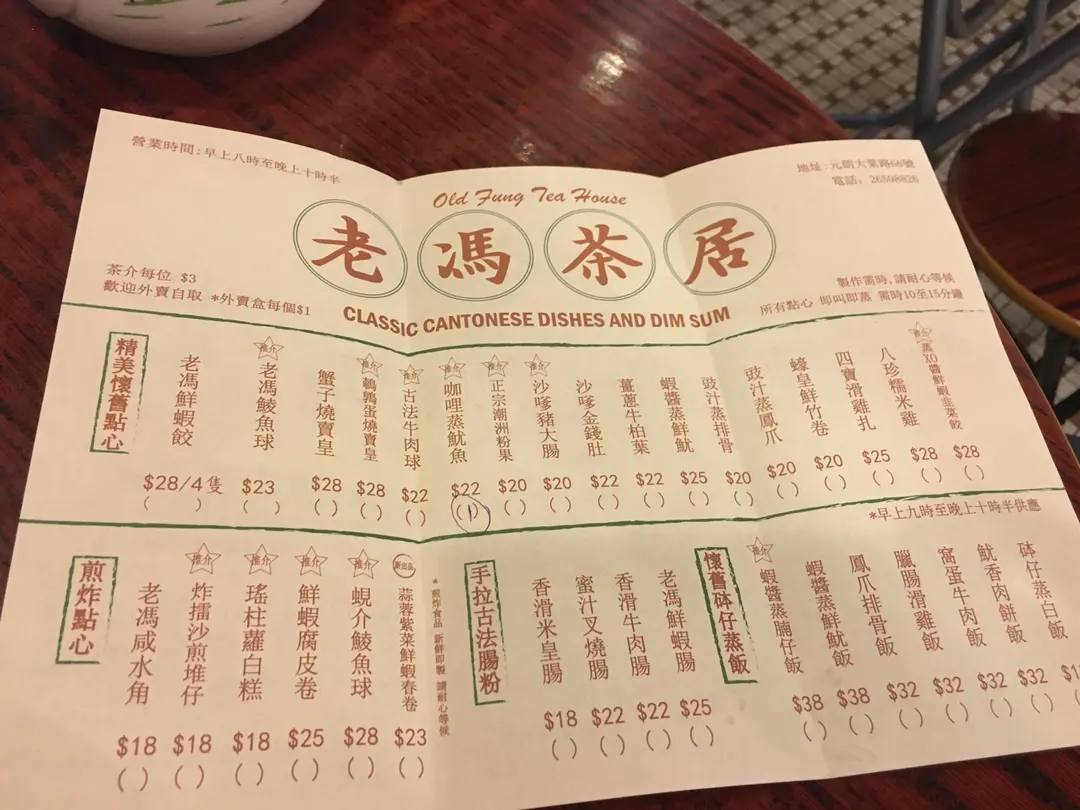 營業時間:早上八時至晚上十時半
地址:元朗大業路66號
電話: 26598828
Old Fung Tea House
老馮茶居
CLASSIC CANTONESE DISHES AND DIM SUM
茶介每位 $3
歡迎外賣自取 *外賣盒每個$1
製作需時,請耐心等候
所有點心 即叫即蒸 需時10至15分鐘
精美懷舊點心
老馮鮮蝦餃 $28/4隻 ( )
推介 老馮鯪魚球 $23 ( )
蟹子燒賣皇 $28 ( )
推介 鵪鶉蛋燒賣皇 $28 ( )
推介 古法牛肉球 $22 ( )
推介 咖哩蒸魷魚 $22 (1)
推介 正宗潮洲粉果 $20 ( )
推介 沙嗲豬大腸 $20 ( )
沙嗲金錢肚 $22 ( )
薑蔥牛柏葉 $22 ( )
蝦醬蒸鮮魷 $25 ( )
豉汁蒸排骨 $20 ( )
豉汁蒸鳳爪 $20 ( )
蠔皇鮮竹卷 $20 ( )
四寶滑雞扎 $25 ( )
八珍糯米雞 $28 ( )
推介 蒸XO醬鮮蝦韭菜餃 $28 ( )
煎炸點心
老馮咸水角 $18 ( )
推介 炸擂沙煎堆仔 $18 ( )
推介 瑤柱蘿白糕 $18 ( )
推介 鮮蝦腐皮卷 $25 ( )
推介 蜆介鯪魚球 $28 ( )
新出品 蒜蓉紫菜鮮蝦春卷 $23 ( )
*煎炸食品 新鮮即製 請耐心等候
手拉古法腸粉
香滑米皇腸 $18 ( )
蜜汁叉燒腸 $22 ( )
香滑牛肉腸 $22 ( )
老馮鮮蝦腸 $25 ( )
*早上九時至晚上十時半供應
懷舊砵仔蒸飯
推介 蝦醬蒸腩仔飯 $38 ( )
蝦醬蒸鮮魷飯 $38 ( )
鳳爪排骨飯 $32 ( )
臘腸滑雞飯 $32 ( )
窩蛋牛肉飯 $32 ( )
魷香肉餅飯 $32 ( )
砵仔蒸白飯